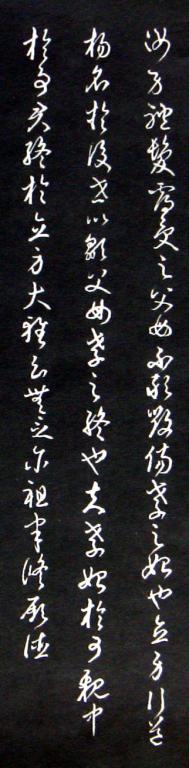 汝身體髮膚受之父母不敢毀傷孝之始也立身行道
揚名於後世以顯父母孝之終也夫孝始於事親中
於事君終於立身大雅云無念尒祖聿脩厥德